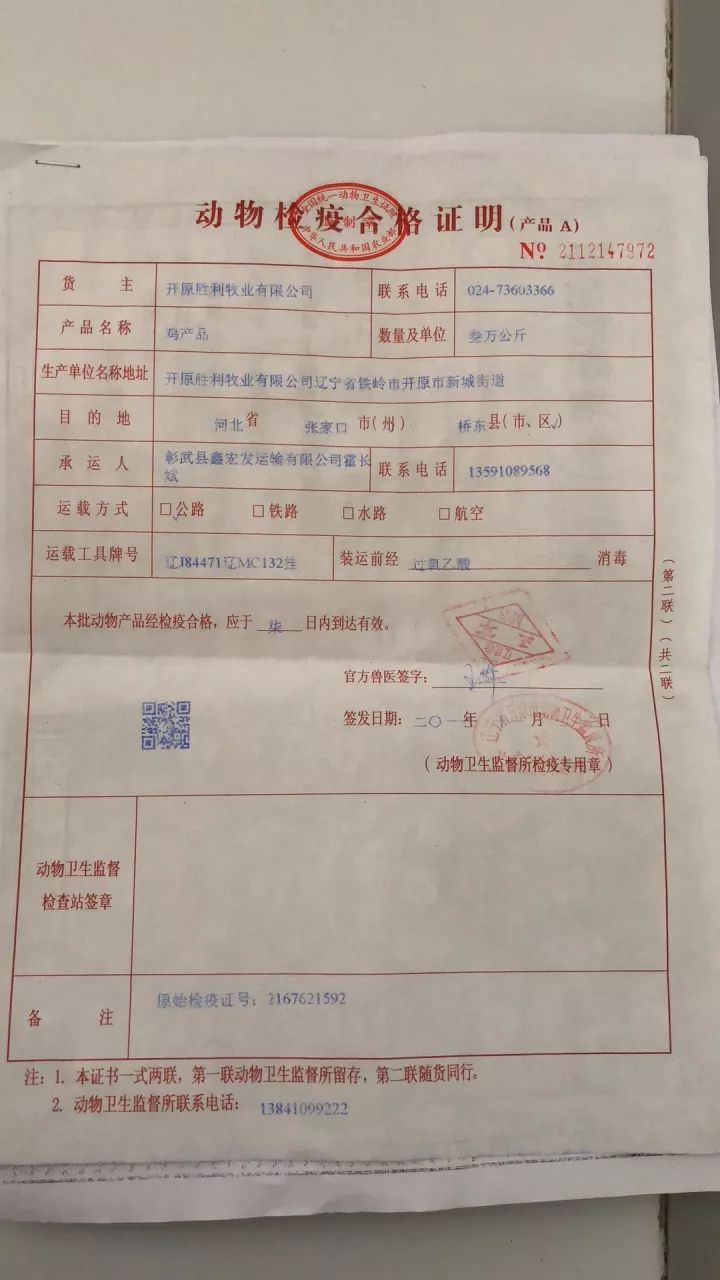 动物检疫合格证明(产品 A)
全国统一动物卫生证章
中华人民共和国农业部
№ 2112147972
货主 开原胜利牧业有限公司 联系电话 024-73603366
产品名称 鸡产品 数量及单位 叁万公斤
生产单位名称地址 开原胜利牧业有限公司辽宁省铁岭市开原市新城街道
目的地 河北省 张家口市(州) 桥东县(市、区√)
承运人 彰武县鑫宏发运输有限公司霍长
斌 联系电话 13591089568
运载方式 ☑公路 □铁路 □水路 □航空
运载工具牌号 辽J84471辽MC132挂 装运前经 过氧乙酸 消毒
本批动物产品经检疫合格，应于 柒 日内到达有效。
官方兽医签字：
签发日期：二〇一 年 月 日
(动物卫生监督所检疫专用章)
(第二联)(共二联)
动物卫生监督
检查站签章
备注 原始检疫证号：2167621592
注：1. 本证书一式两联，第一联动物卫生监督所留存，第二联随货同行。
2. 动物卫生监督所联系电话： 13841099222